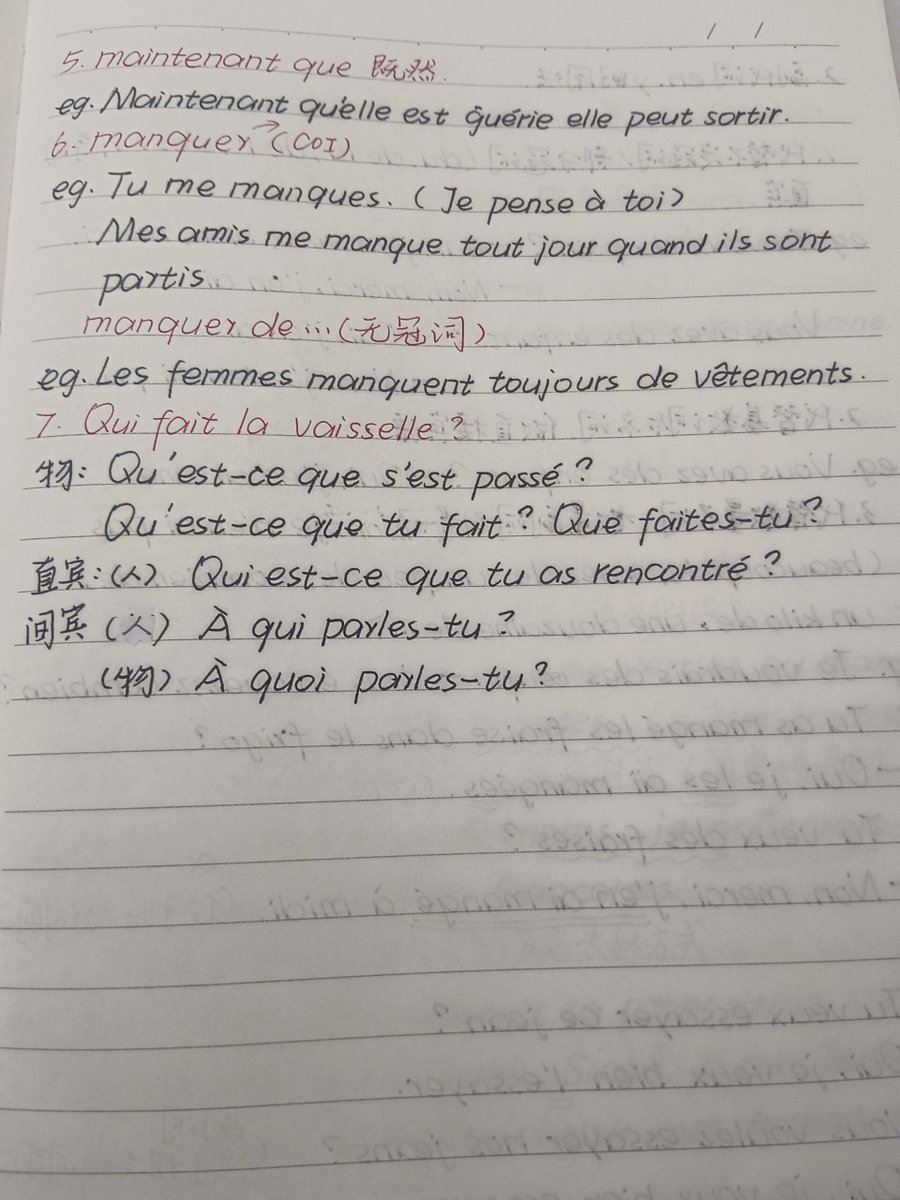 / /
5. maintenant que 既然.
eg. Maintenant qu'elle est guérie elle peut sortir.
6. manquer → (COI)
eg. Tu me manques. (Je pense à toi)
Mes amis me manque tout jour quand ils sont
partis.
manquer de ... (无冠词)
eg. Les femmes manquent toujours de vêtements.
7. Qui fait la vaisselle ?
物: Qu'est-ce que s'est passé ?
Qu'est-ce que tu fait ? Que faites-tu ?
直宾: (人) Qui est-ce que tu as rencontré ?
间宾 (人) À qui parles-tu ?
(物) À quoi parles-tu ?